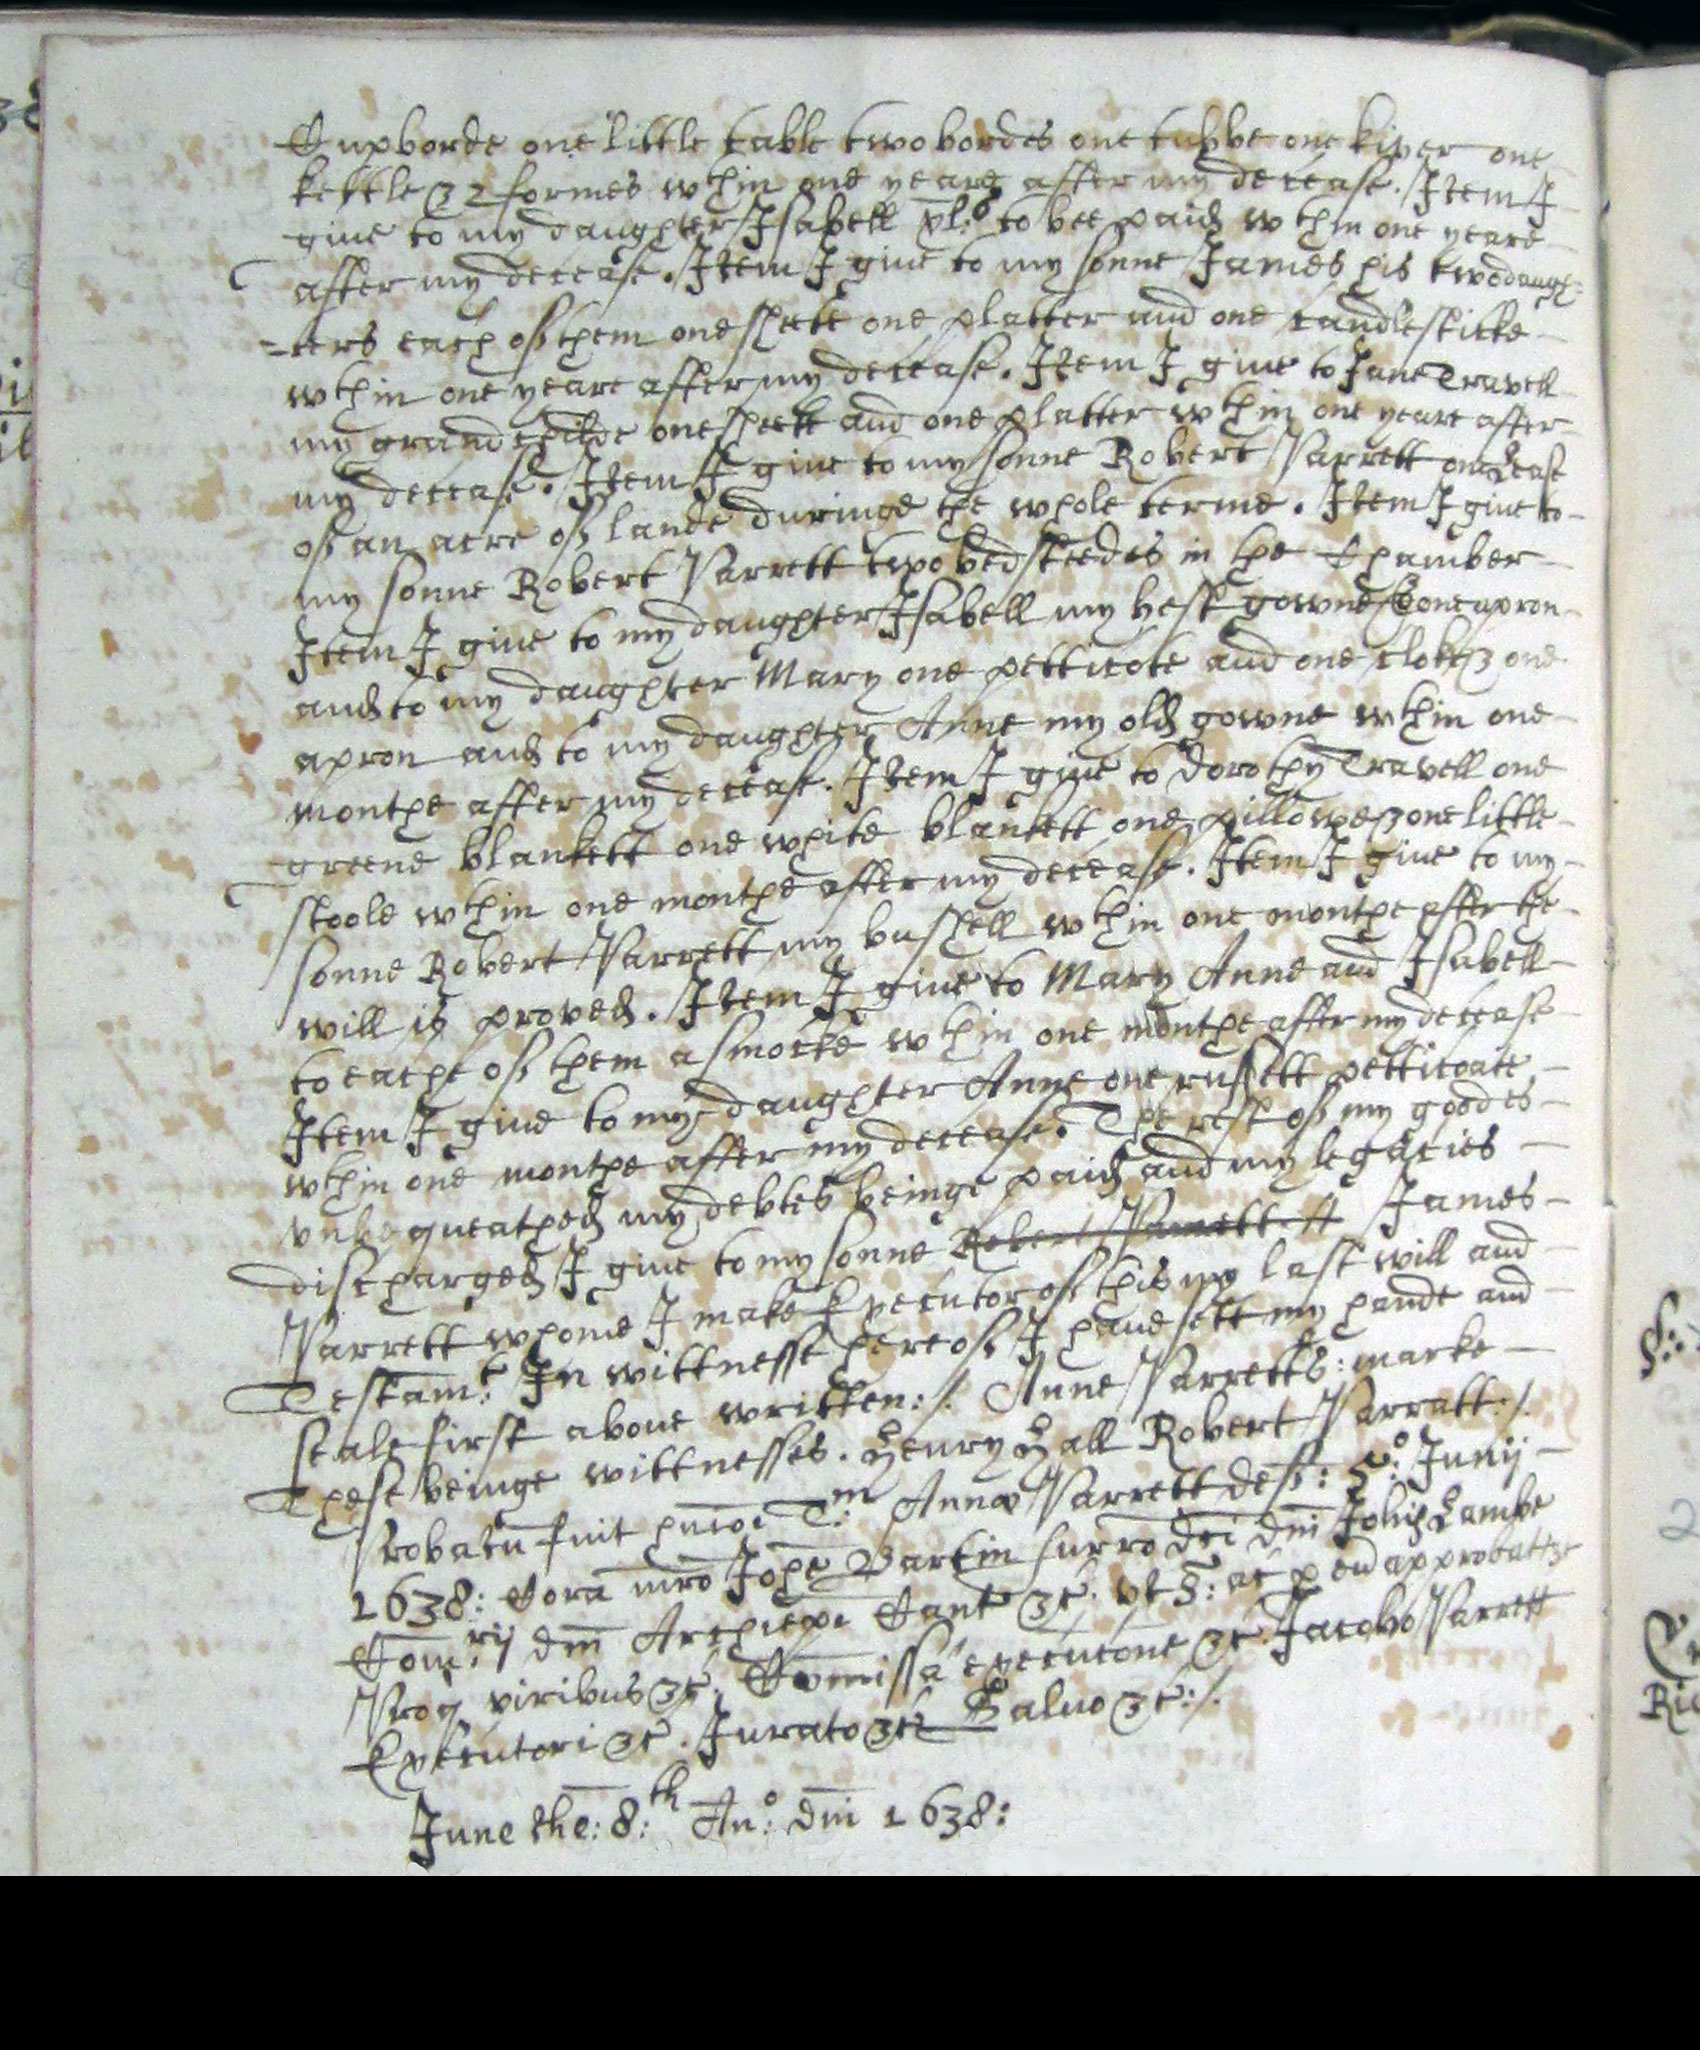 Cupborde one little table two bordes one tubbe one kiver one
kettle & 2 formes wthin one yeare after my decease. Item I
give to my daughter Isabell xl:s to bee paid wthin one yeare
after my decease. Item I give to my sonne James his two daugh-
-ters each of them one sheete one platter and one candlesticke
wthin one yeare after my decease. Item I give to Jane Travell
my grandchilde one sheete and one platter wthin one yeare after
my decease. Item I give to my sonne Robert Parrett one Lease
of an acre of lande duringe the whole terme. Item I give to
my sonne Robert Parrett two bedsteedes in the Chamber
Item I give to my daughter Isabell my best gowne & one apron
and to my daughter Mary one petticote and one cloke & one
apron and to my daughter Anne my old gowne wthin one
monthe after my decease. Item I give to Dorothy Travell one
greene blankett one white blankett one pillowe & one little
stoole wthin one monthe after my decease. Item I give to my
sonne Robert Parrett my bushell wthin one monthe after the
will is proved. Item I give to Mary Anne and Isabell
to eache of them a smocke wthin one monthe after my decease
Item I give to my daughter Anne one russett petticoate
wthin one monthe after my decease. The rest of my goodes
unbequeathed my debtes beinge paid and my legacies
discharged I give to my sonne Robert Parrett James
Parrett whome I make Executor of this my last will and
Testam:t In wittnesse hereof I have sett my hande and
seale first above written:/. Anne Parretts: marke
These beinge wittnesses. Henry Hall Robert Parratt:/.
Probatu fuit hmoi T:m Annæ Parrett def: 5:o Junij
1638: Cora mro Johe Bartin surro dci dni Johis Lambe
Com:rij dni Archiepi Cant &c. vt s: ac p eu approbat &c
Proq viribus &c. Comissa executone &c. Jacobo Parrett
Executori &c. Jurato &c Salvo &c:/.
June the: 8:th An:o dni 1638: